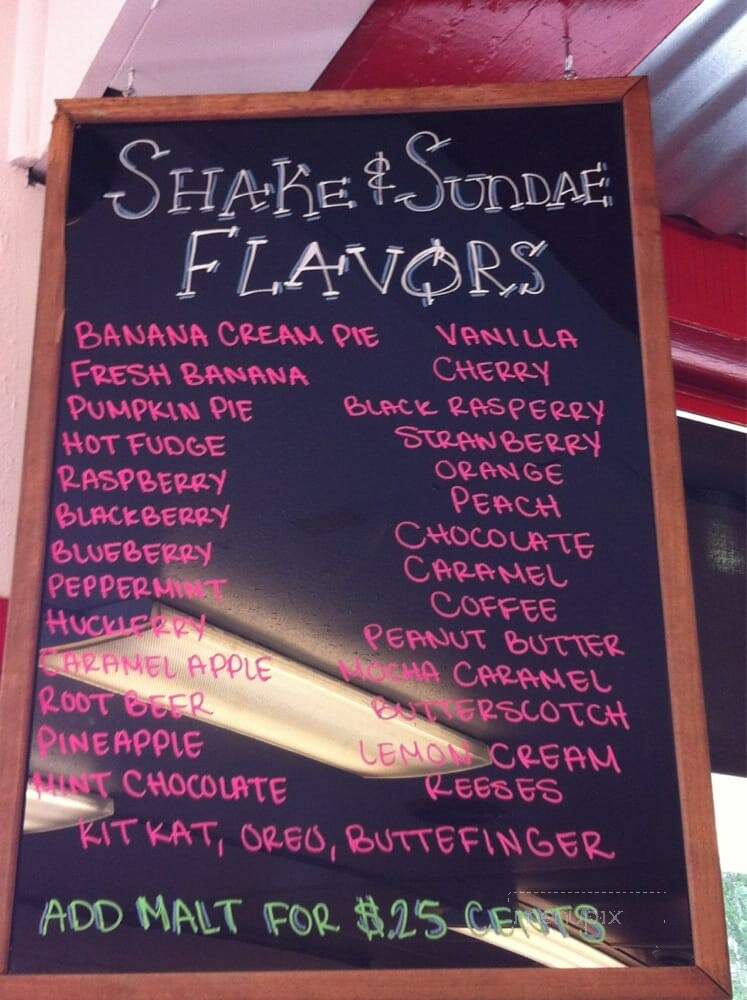 SHAKE & SUNDAE
FLAVORS
BANANA CREAM PIE
FRESH BANANA
PUMPKIN PIE
HOT FUDGE
RASPBERRY
BLACKBERRY
BLUEBERRY
PEPPERMINT
HUCKLERRY
CARAMEL APPLE
ROOT BEER
PINEAPPLE
MINT CHOCOLATE
VANILLA
CHERRY
BLACK RASPERRY
STRANBERRY
ORANGE
PEACH
CHOCOLATE
CARAMEL
COFFEE
PEANUT BUTTER
MOCHA CARAMEL
BUTTERSCOTCH
LEMON CREAM
REESES
KIT KAT, OREO, BUTTEFINGER
ADD MALT FOR $.25 CENTS
menupix